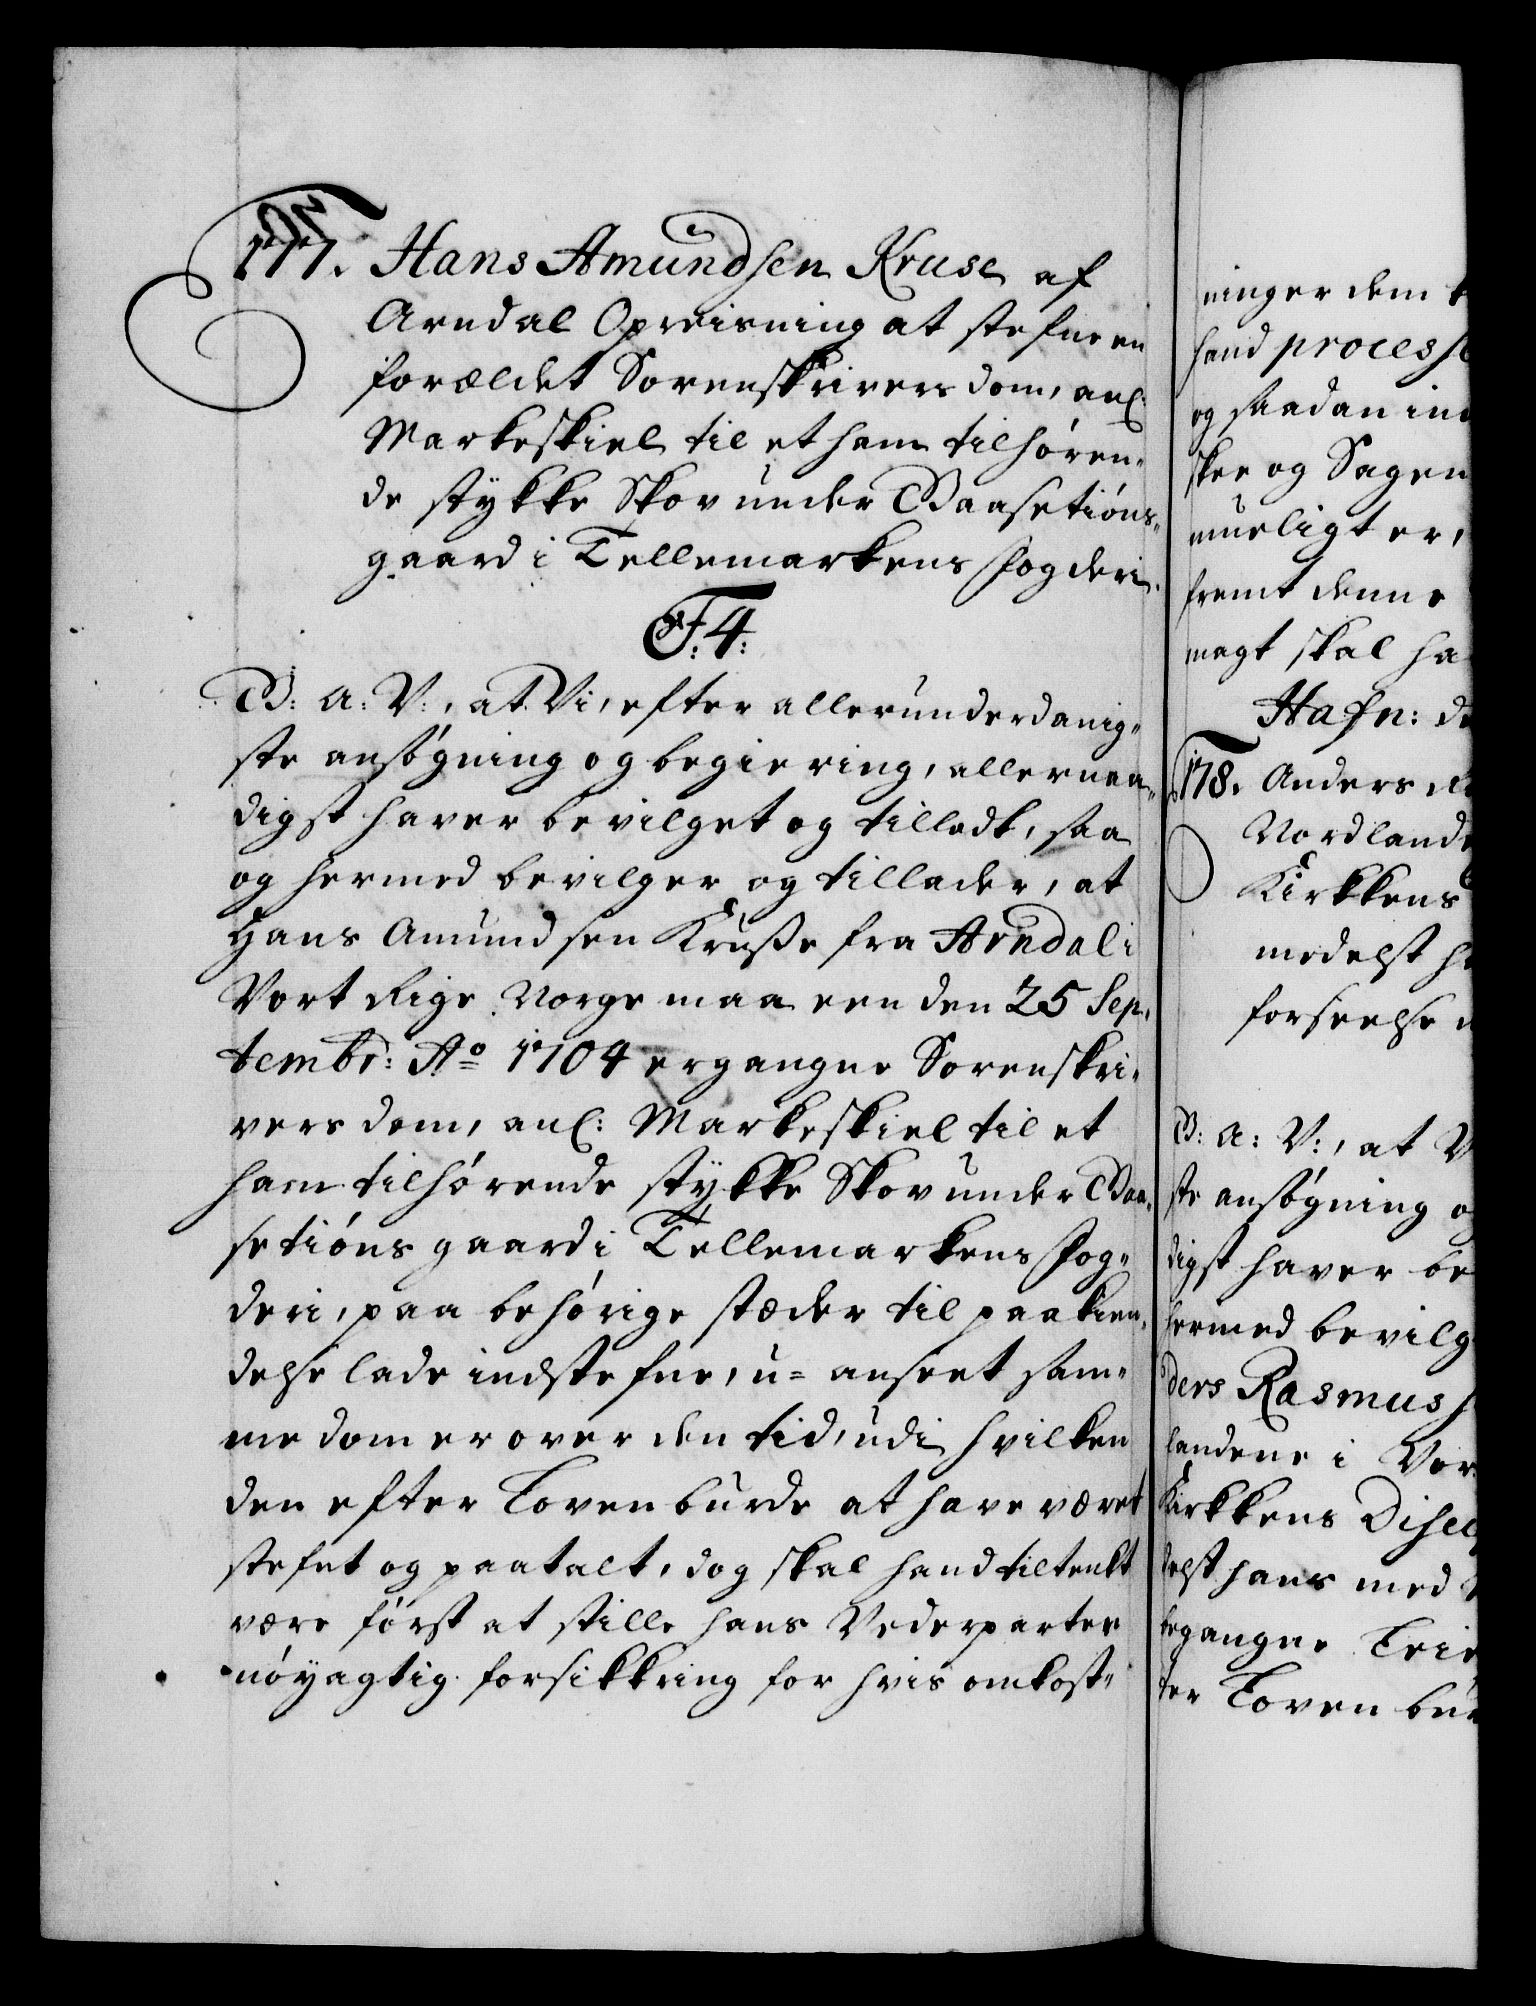 177. Hans Amundsen Kruse af
Arndal Opreisning at stefne en
forældet Sorenskrivers dom, anl:
Markeskiel til et ham tilhøren-
de stykke Skov under Baasetiøns-
gaard i Tellemarkens fogderi.
F. 4:
B: A: V:, at Vi, efter allerunderdanig-
ste ansøgning og begiering, allernaa-
digst haver bevilget og tilladt, saa
og hermed bevilger og tillader, at
Hans Amundsen Kruse fra Arndal i
Vort Rige Norge maa een den 25 Sep-
tembr: Ao 1704 ergangne Sorenskri-
vers dom, anl: Markeskiel til et
ham tilhørende stykke Skov under Baa-
setiøns gaard i Tellemarkens fog-
deri, paa behørige stæder til paakien-
delse lade indstefne, u-anseet sam-
me dom er over den tid, udi hvilken
den efter Loven burde at have været
stefnt og paatalt, dog skal hand tiltenkt
være først at stille hans Vederparter
nøyagtig forsikkring for hvis omkost-
ninger dem
hand process
og saadan ind
skee og Sagen
mueligt er,
fremt denne
magt skal ha
Hafn: d
178. Anders
Nordland
Kirkkens
medelst h
forseelse
B: A: V:, at V
ste ansøgning o
digst haver be
hermed bevilg
ders Rasmus
landene i Vor
Kirkkens Discip
delst hans med
begangne Leie
ter Loven bur